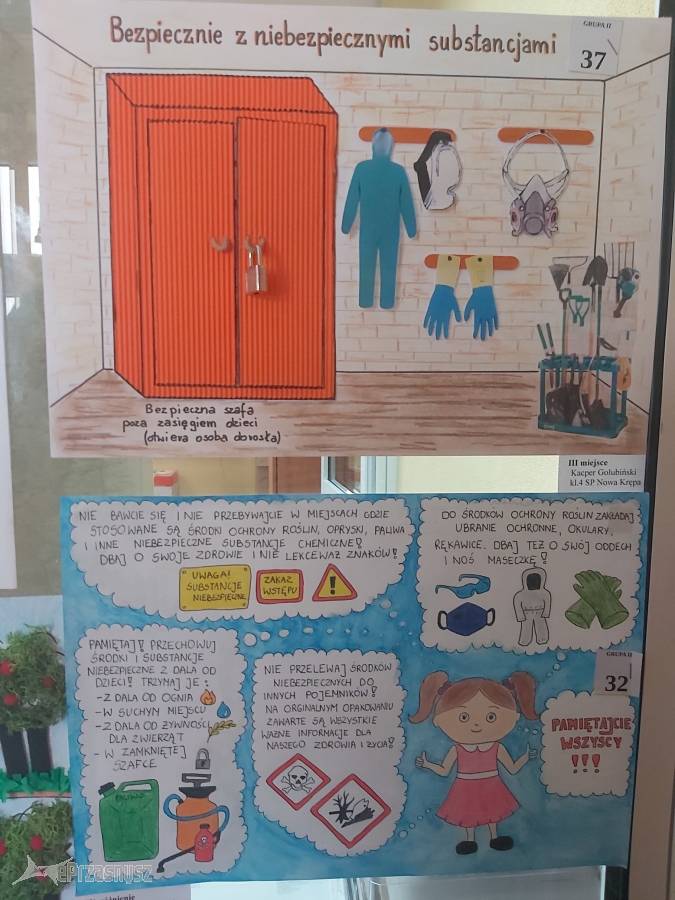 Bezpiecznie z niebezpiecznymi substancjami
GRUPA II
37
Bezpieczna szafa
poza zasięgiem dzieci
(otwiera osoba dorosła)
III miejsce
Kacper Gołubiński
kl.4 SP Nowa Krępa
NIE BAWCIE SIĘ I NIE PRZEBYWAJCIE W MIEJSCACH GDZIE
STOSOWANE SĄ ŚRODKI OCHRONY ROŚLIN, OPRYSKI, PALIWA
I INNE NIEBEZPIECZNE SUBSTANCJE CHEMICZNE!
DBAJ O SWOJE ZDROWIE I NIE LEKCEWAŻ ZNAKÓW!
UWAGA!
SUBSTANCJE
NIEBEZPIECZNE
ZAKAZ
WSTĘPU
!
DO ŚRODKÓW OCHRONY ROŚLIN ZAKŁADAJ
UBRANIE OCHRONNE, OKULARY,
RĘKAWICE. DBAJ TEŻ O SWÓJ ODDECH
I NOŚ MASECZKĘ!
PAMIĘTAJ! PRZECHOWUJ
ŚRODKI I SUBSTANCJE
NIEBEZPIECZNE Z DALA OD
DZIECI! TRZYMAJ JE:
-Z DALA OD OGNIA
-W SUCHYM MIEJSCU
-Z DALA OD ŻYWNOŚCI,
DLA ZWIERZĄT
-W ZAMKNIĘTEJ
SZAFCE
PALIWO
NIE PRZELEWAJ ŚRODKÓW
NIEBEZPIECZNYCH DO
INNYCH POJEMNIKÓW!
NA ORGINALNYM OPAKOWANIU
ZAWARTE SĄ WSZYSTKIE
WAŻNE INFORMACJE DLA
NASZEGO ZDROWIA I ŻYCIA!
GRUPA II
32
PAMIĘTAJCIE
WSZYSCY
!!!
ePrzasnysz